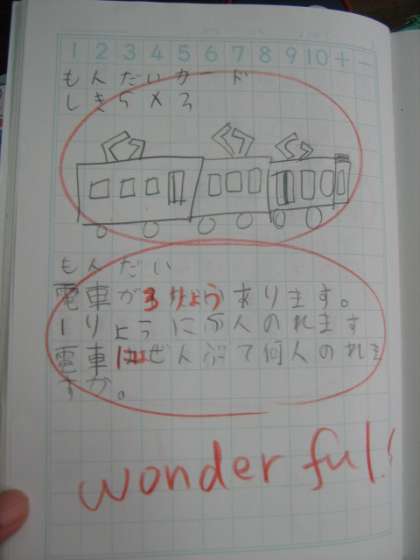 1 2 3 4 5 6 7 8 9 10 + −
もんだいカード
しき5×3
もんだい
電車が3りょうあります。
1りょうに5人のれます
電車はぜんぶで何人のれま
すか。
wonderful!